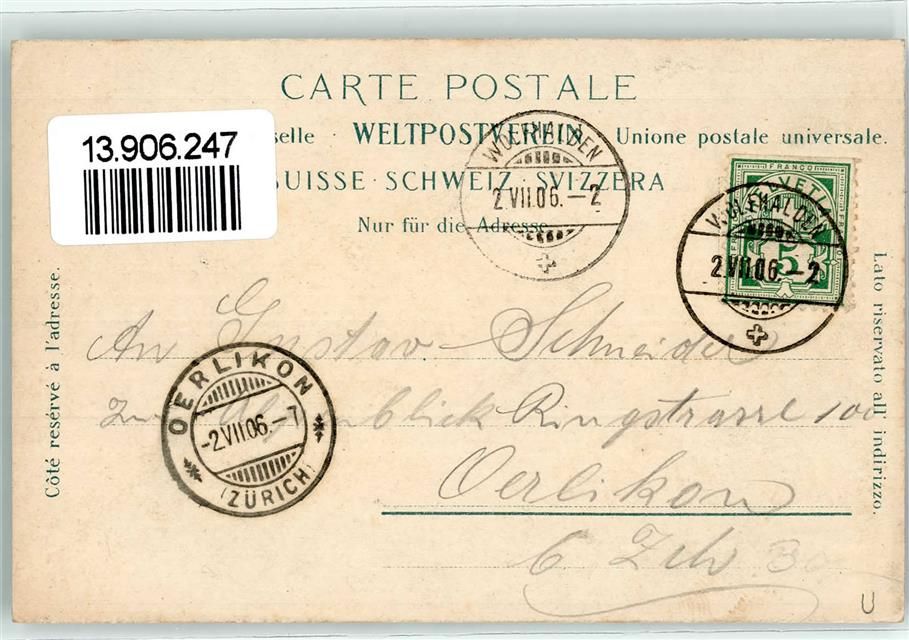 CARTE POSTALE
13.906.247
selle · WELTPOSTVEREIN · Unione postale universale.
SUISSE · SCHWEIZ · SVIZZERA
Nur für die Adresse
WOLFHALDEN
2.VII.06.–2
FRANCO
HELVETIA
5
WOLFHALDEN
2.VII.06–2
Côté reservé à l'adresse.
Lato riservato all' indirizzo.
An Gustav Schneider
Alpenblick Ringstrasse 100
Oerlikon
b Zch
OERLIKON
-2.VII.06.–7
(ZÜRICH)
U